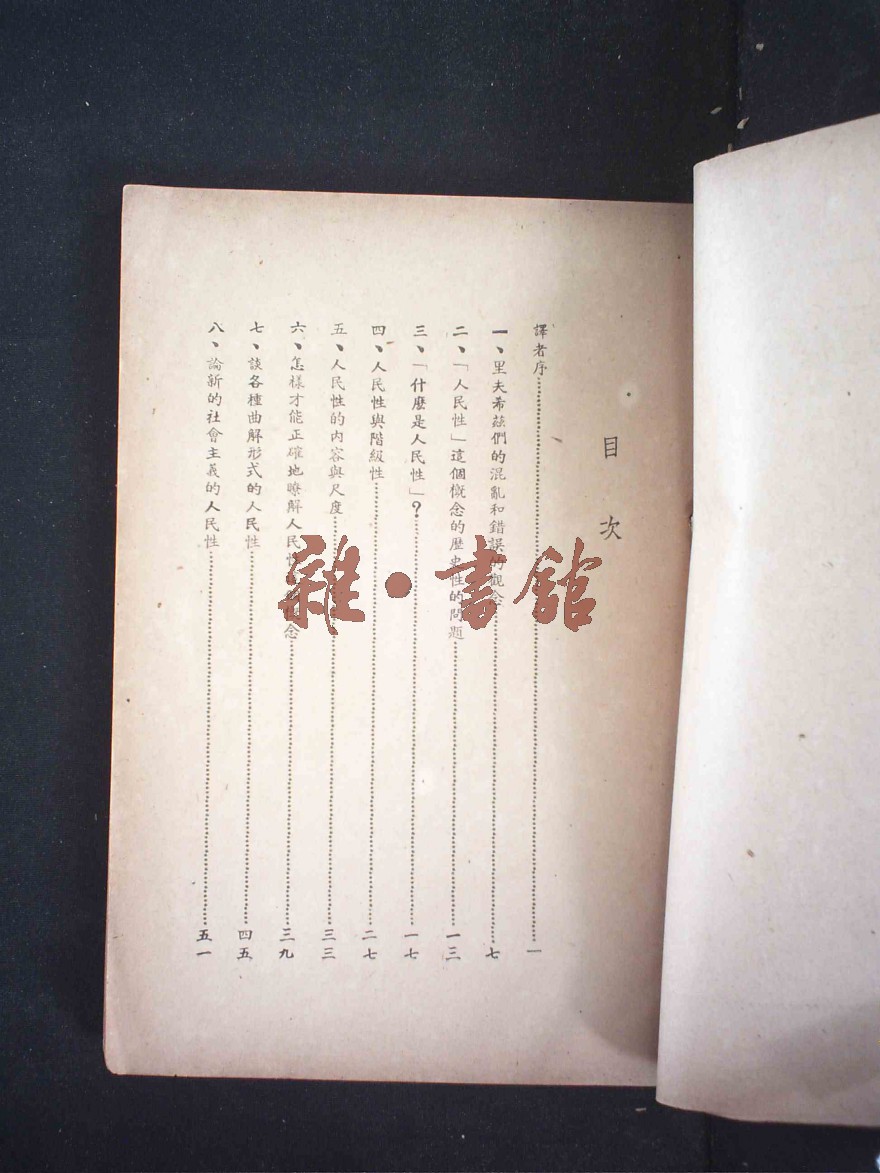 目次
譯者序……一
一、里夫希茲們的混亂和錯誤的觀念……七
二、「人民性」這個概念的歷史性的問題……一三
三、「什麼是人民性」?……一七
四、人民性與階級性……二七
五、人民性的內容與尺度……三三
六、怎樣才能正確地暸解人民性概念……三九
七、談各種曲解形式的人民性……四五
八、論新的社會主義的人民性……五一
雜·書館